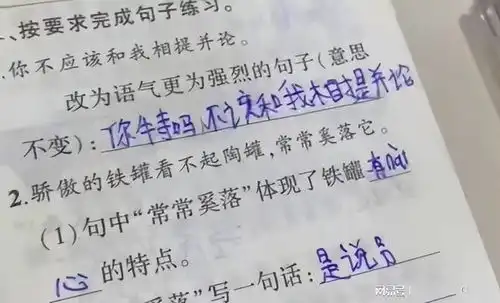 、按要求完成句子练习。
.你不应该和我相提并论。
改为语气更为强烈的句子(意思
不变):你牛毒吗,不该和我相提并论
2.骄傲的铁罐看不起陶罐,常常奚落它。
(1)句中“常常奚落”体现了铁罐有同
心的特点。
奚落”写一句话:是说员